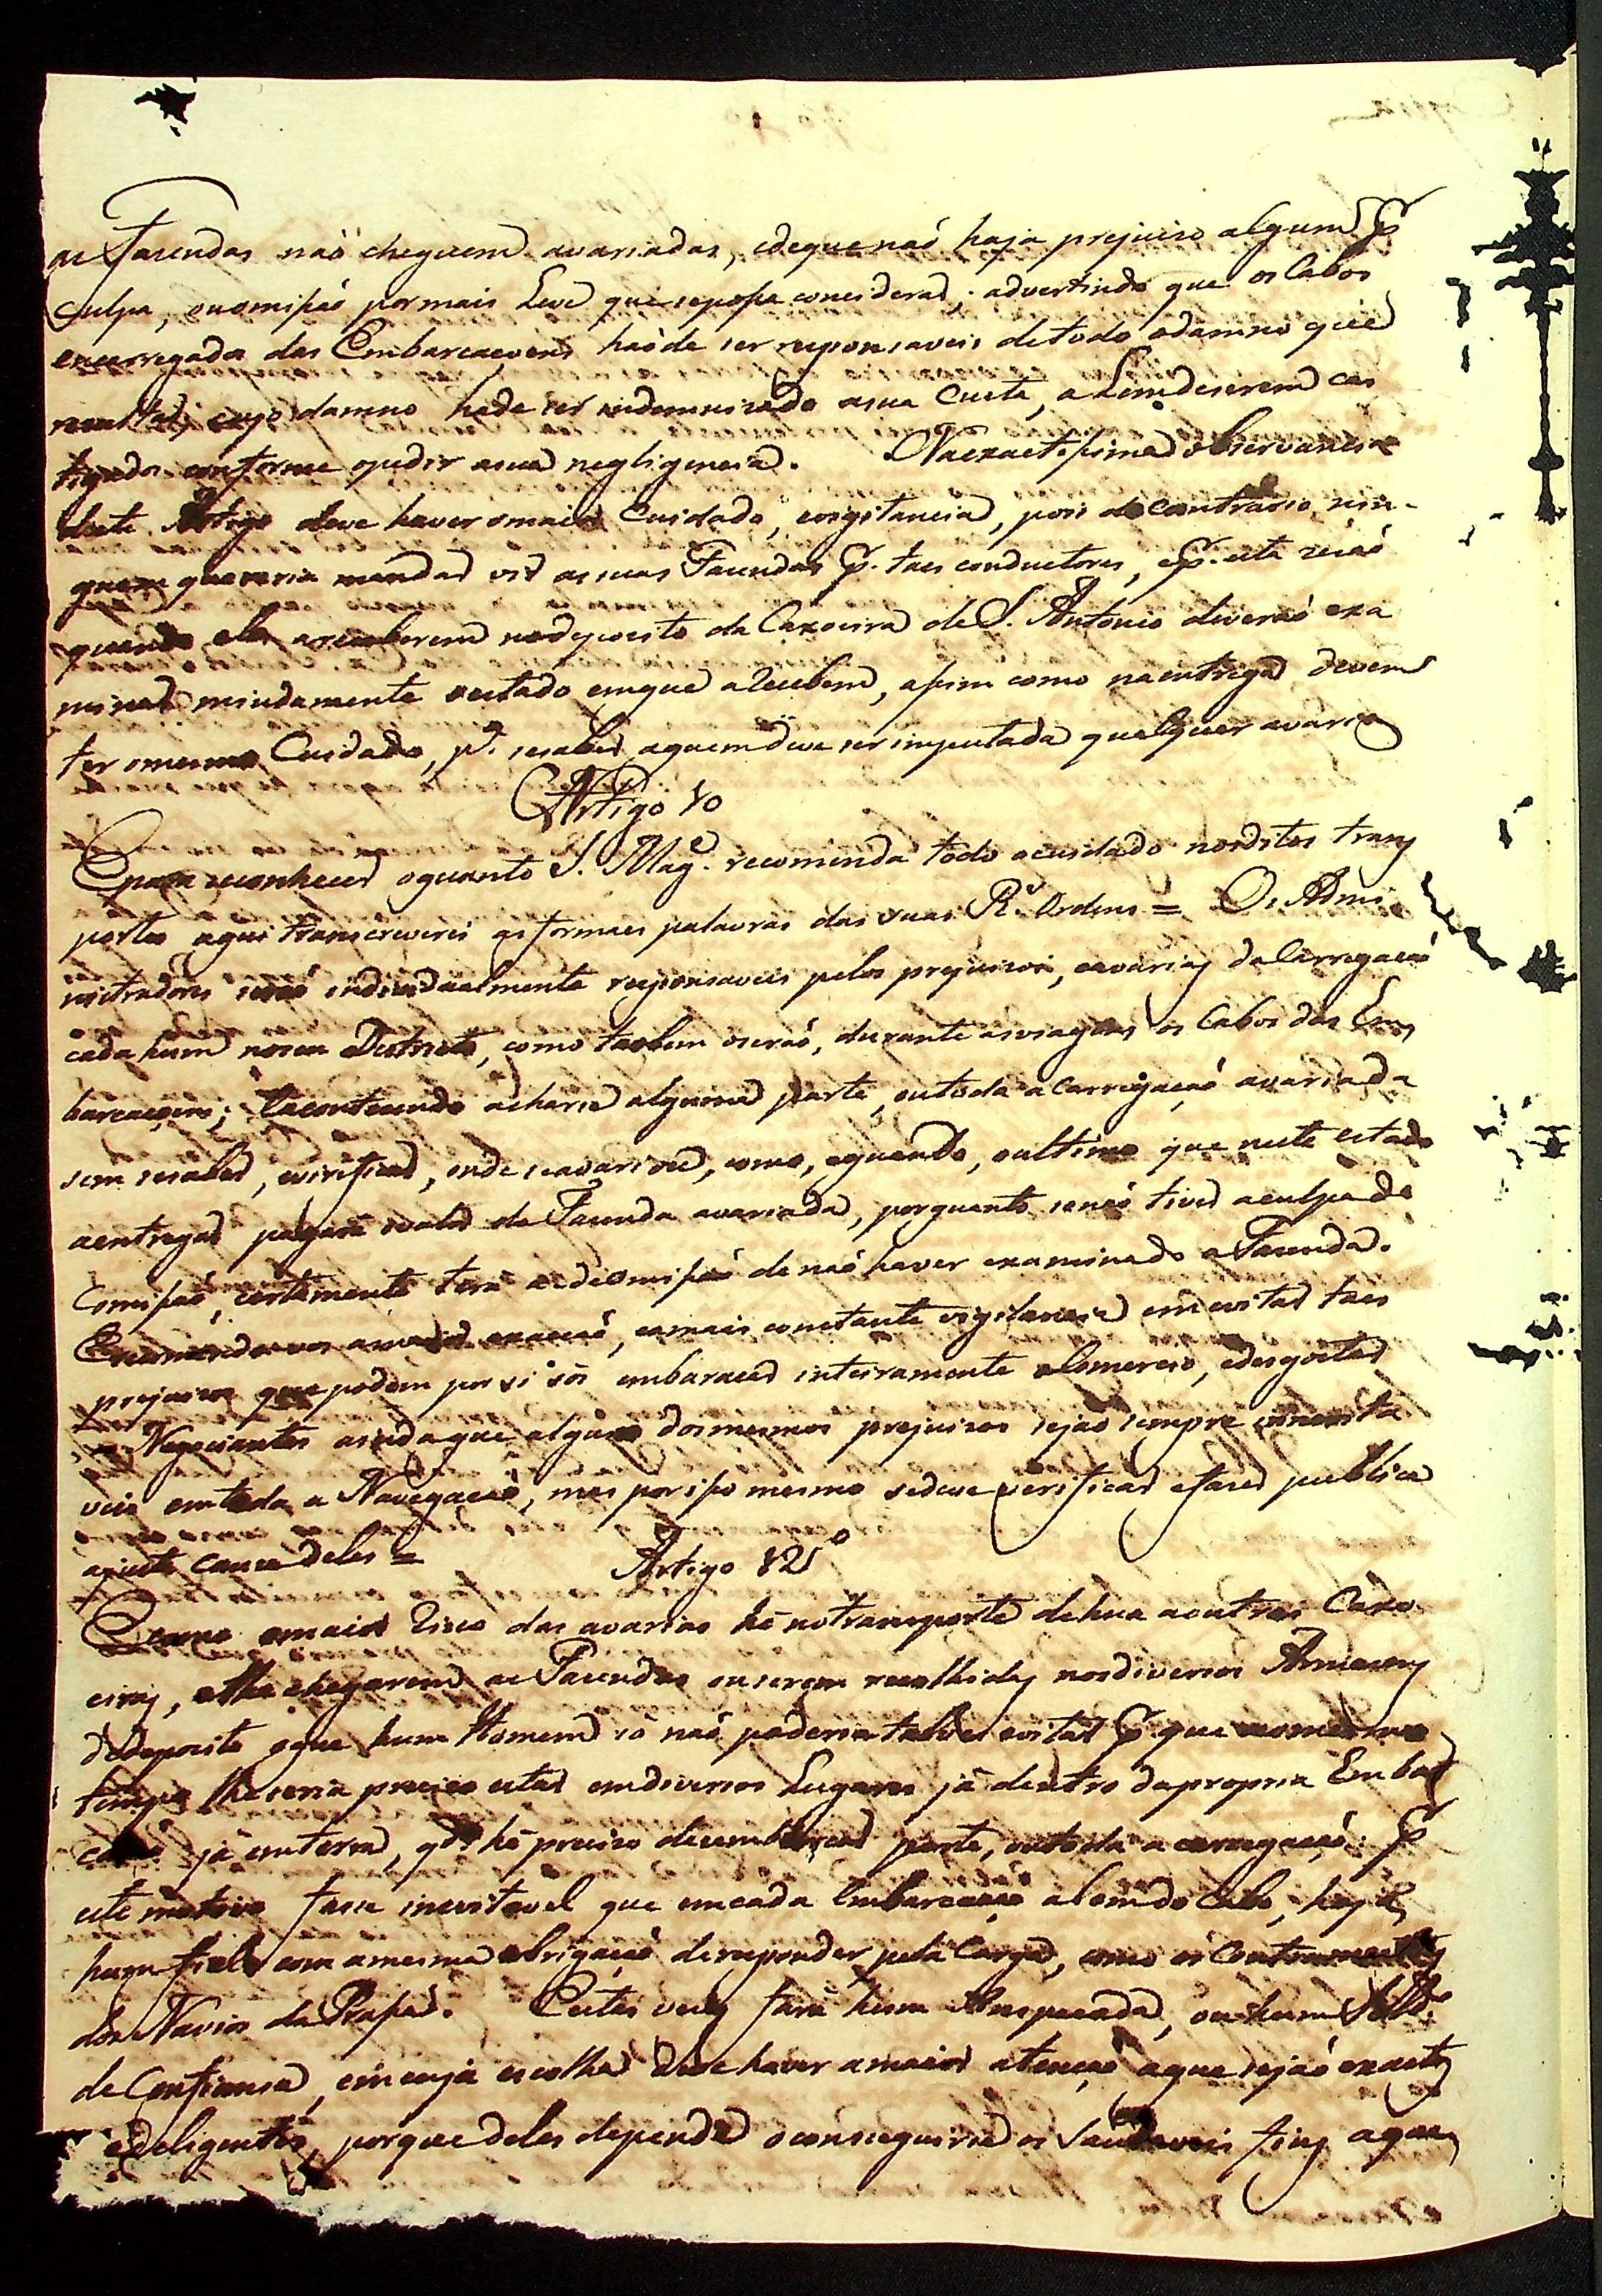 as Fasendas naõ cheguem avariadas, edequenaõ haja prejuizo algum p.
culpa, ouomissaõ pormais Leve que sepossa considerar; advertindo que os Cabos
encarregados das Embarcaçoens haõde ser responsaveis detodo odamno que
resultar, cujo damno hade ser indemnisado asua Custa, alemdeserem cas
tigados conforme opedir asua negligencia. Naexactissima observancia
deste Artigo deve haver omaior Cuidado, evigilancia, pois do Contrario nin-
guem quereria mandar vir assuas Fasendas p. taes conductores, ep. esta rasaõ
quando elles areceberem nodeposito da Caxoeira de S. Antonio deveraõ exa
minar miudamente oestado emque arecebem, assim como naentrega devem
ter omesmo Cuidado, p.ª sesaber aquemdeve ser imputada qualquer avaria
Artigo 10
Epara reconhecer oquanto S. Mag.e recomenda todo ocuidado nosditos trans
portes aqui transcreverei as formaes palavras das suas R.s Ordens = Os Admi
nistradores seraõ individualmente responsaveis pelos prejuisos, eavarias da Carregaçaõ
cada hum noseu Destricto, como taobem oseraõ, durante asviagens os Cabos das Em
barcaçoens; Eacontecendo acharse alguma parte, outoda a Carregaçaõ avariada
sem sesaber, everificar, onde seavariou, como, equando, oultimo que neste estado
aentregar pagará ovalor da Fasenda avariada, porquanto senaõ tiver aculpa da
Comissaõ, certamente terá adeomissaõ de naõ haver examinado a Fasenda.
Erecomendovos amaior exacçaõ, eamais constante vigilancia emevitar taes
prejuisos que podem por si sós embaraçar inteiramente oComercio, edesgostar
os Negociantes aindaque alguns dosmesmos prejuisos sejaõ sempre innevita
veis emtoda a Navegaçaõ, mas porisso mesmo sedeve verificar efazer publica
ajusta causa deles = Artigo 121º
Como omaior Risco das avarias hé notransporte dehua aoutras Caxo
eiras, athe chegarem as Fasendas ouserem recolhidas nosdiversos Armasens
dedeposito oque hum Homem só naõ poderia talves evitar p. que aomesmo
tempo lheseria preciso estar emdiversos Lugares já dentro dapropria Embar
caçaõ já emterra, q.do hé preciso desembarcar parte, outoda a carregaçaõ: p.
este motivo fasse inevitavel que emcada Embarcaçaõ alemdo Cabo, haja
hum fiel com amesma obrigaçaõ deresponder pela Carga, como os Contramestres
dos Navios da Praça. Estas vezes fará hum Anspeçada, ou hum Sold.º
de Confiansa, emcuja escolha deve haver amaior atençaõ aque sejaõ exactos
edeligentes, porque deles depende oconseguirse os Saudaveis fins aque